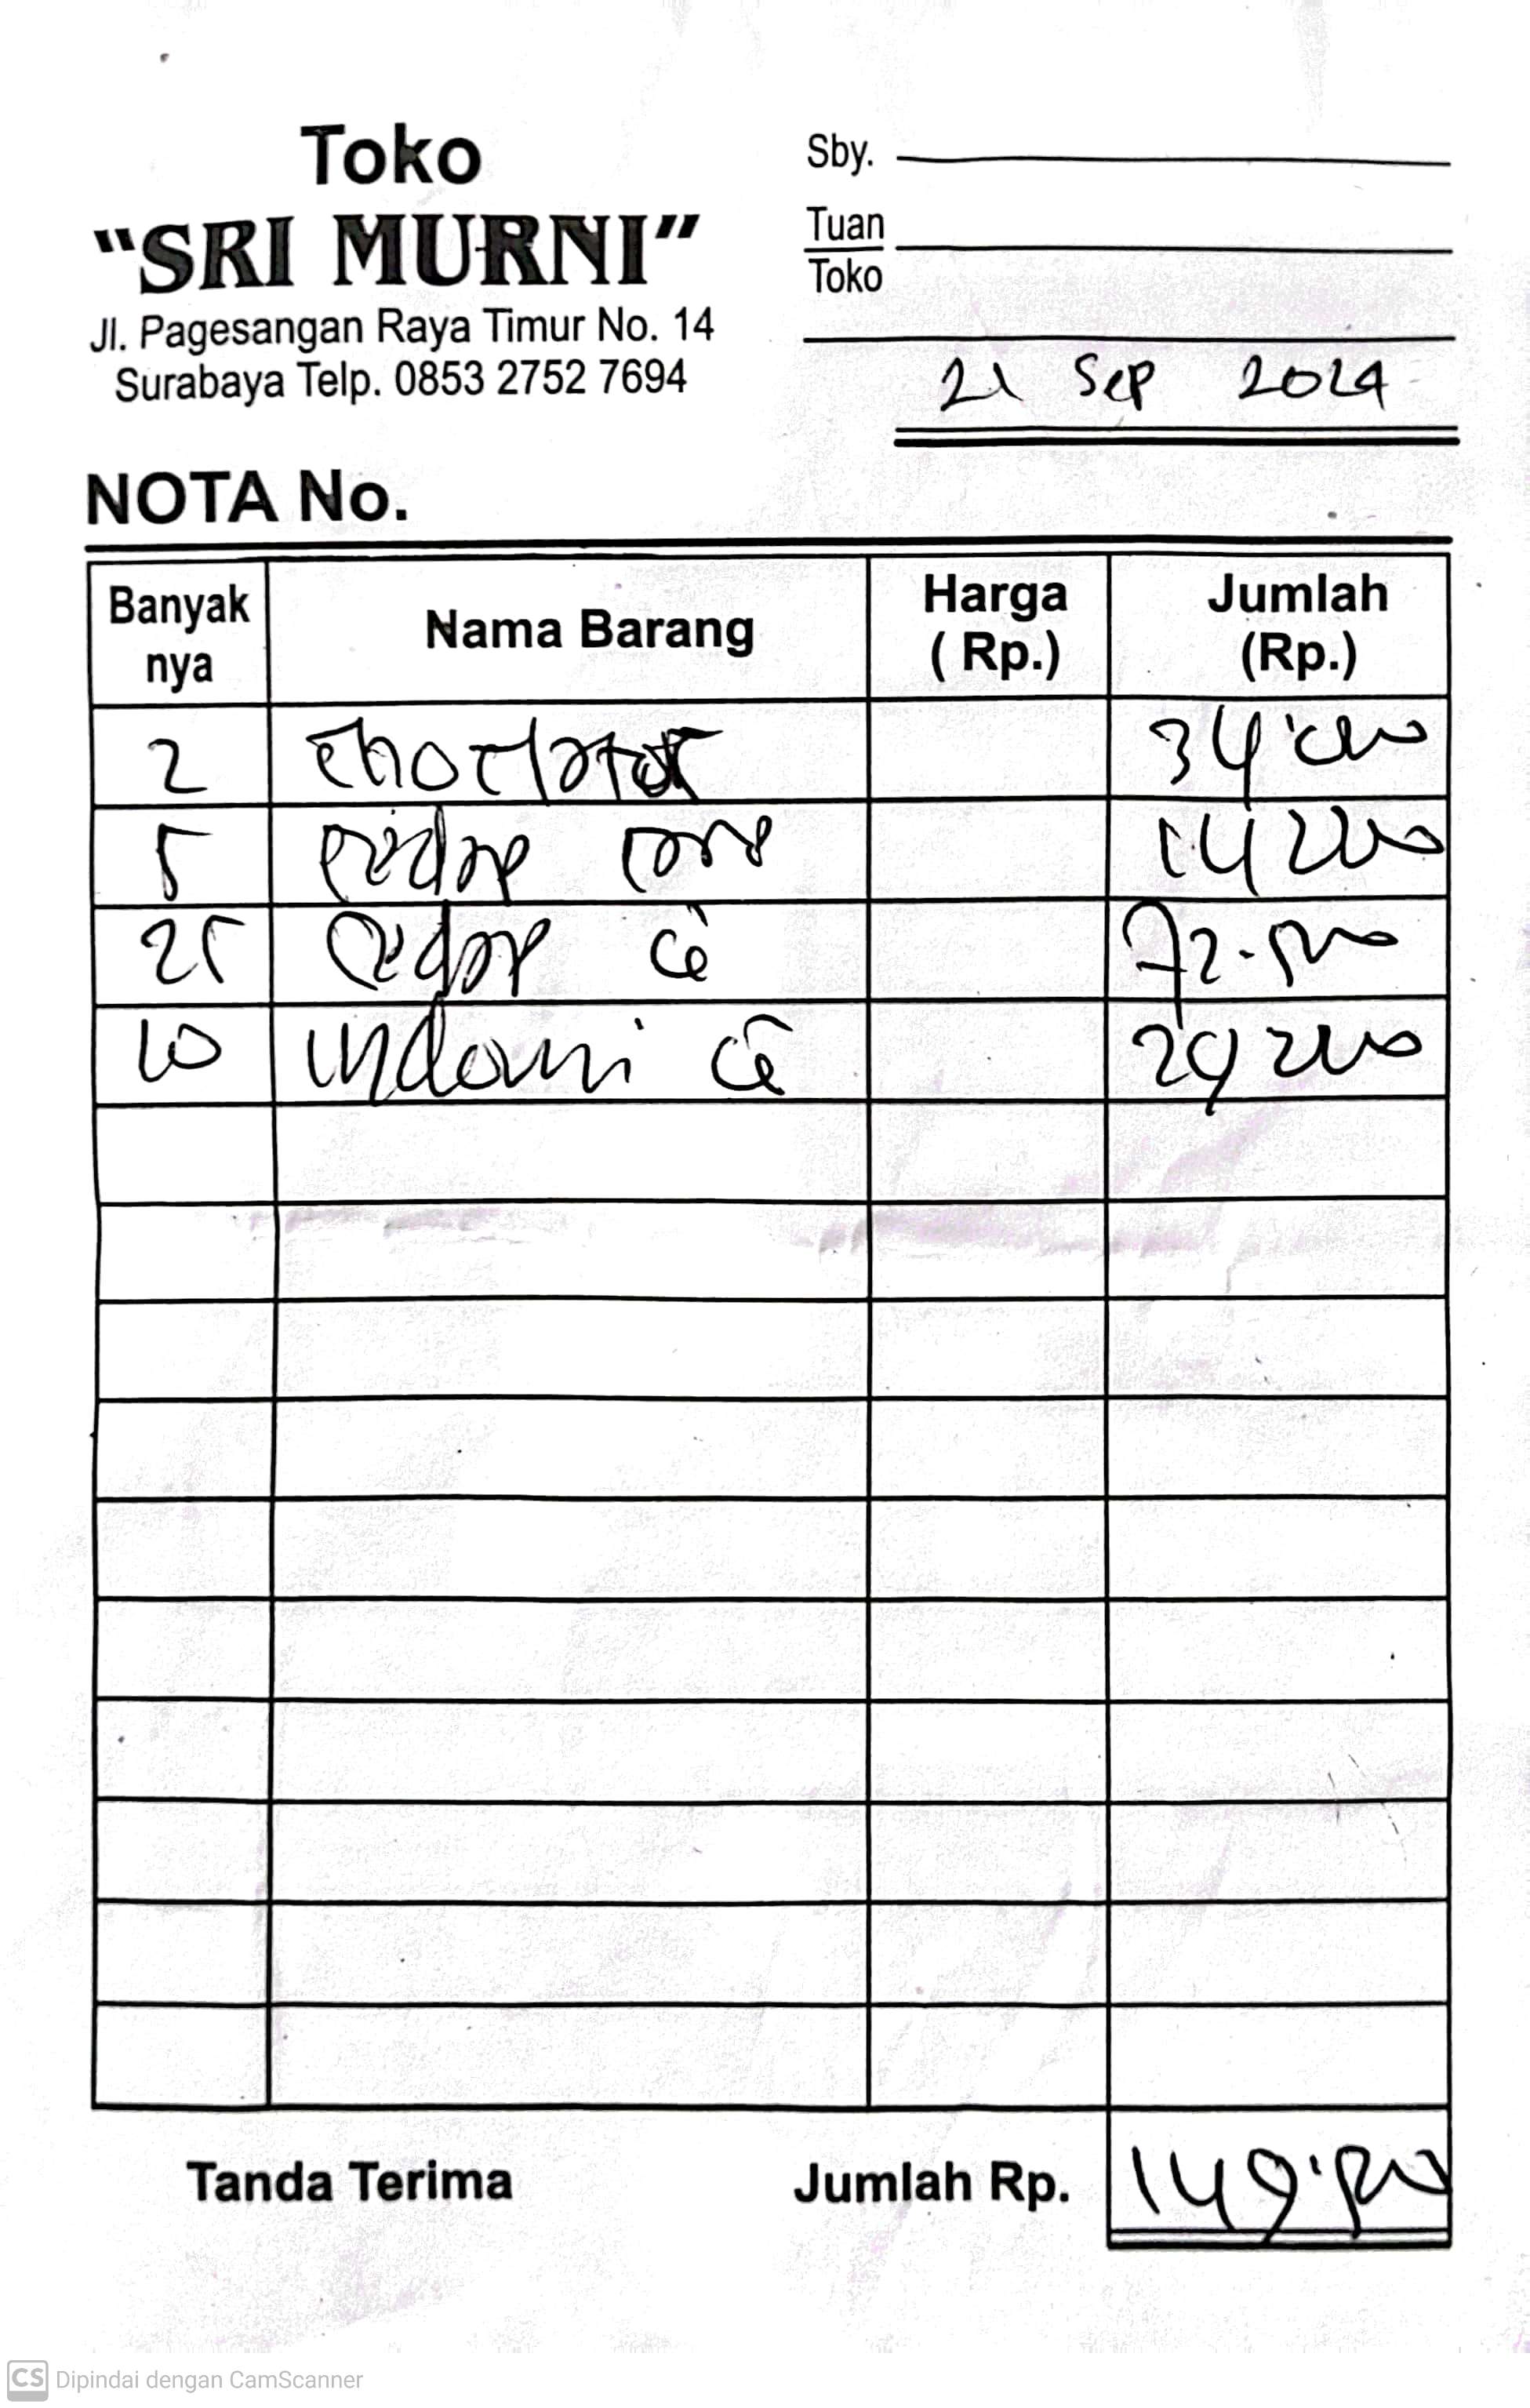 Toko
"SRI MURNI"
Jl. Pagesangan Raya Timur No. 14
Surabaya Telp. 0853 2752 7694
Sby.
Tuan
Toko
21 Sep 2024
NOTA No.
Banyak nya Nama Barang Harga (Rp.) Jumlah (Rp.)
2 34.000
5 14 200
25 72.500
10 indomi 29 200
Tanda Terima Jumlah Rp. 149.500
CS Dipindai dengan CamScanner